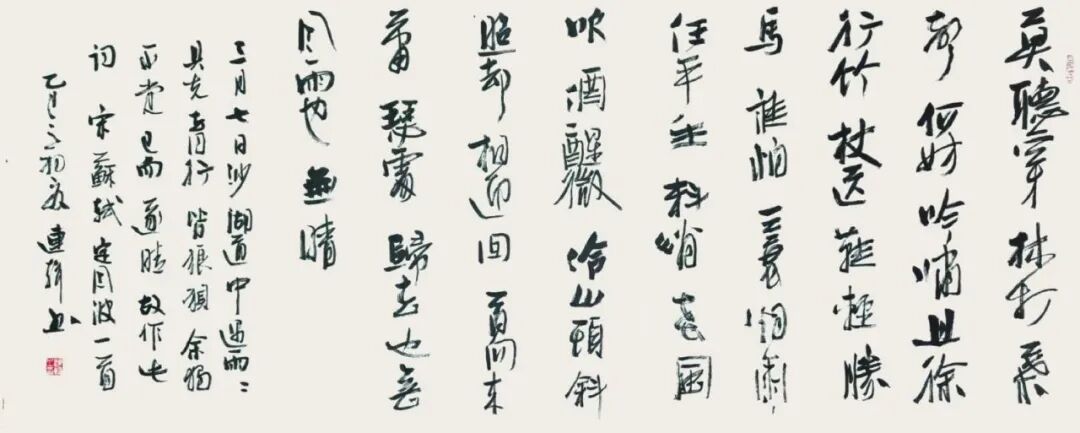 莫聽穿林打葉
聲何妨吟嘯且徐
行竹杖芒鞋輕勝
馬誰怕一蓑烟雨
任平生料峭春風
吹酒醒微冷山頭斜
照却相迎回首向来
蕭瑟處歸去也無
風雨也無晴
三月七日沙湖道中遇雨〻
具先去同行皆狼狽余獨
不覺已而遂晴故作此
詞 宋蘇軾定風波一首
乙巳之初夏連辑书